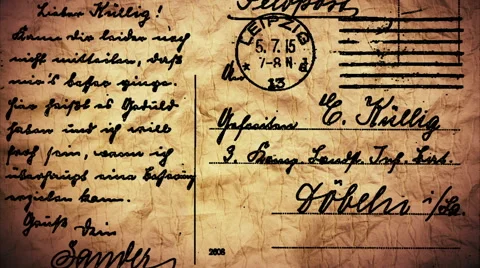 Lieber Küllig!
Kann dir leider noch
nicht mitteilen, daß
mir's besser ginge.
Hier heißt es Geduld
haben und ich will
froh sein, wenn ich
überhaupt eine Besserung
erzielen kann.
Gruß Dein
Sander
Feldpost
LEIPZIG
5.7.15
7-8 N
* 13
An
Gefreiten E. Küllig
3. Komp. Landst. Inf. Bat.
Döbeln i/Sa.
2606